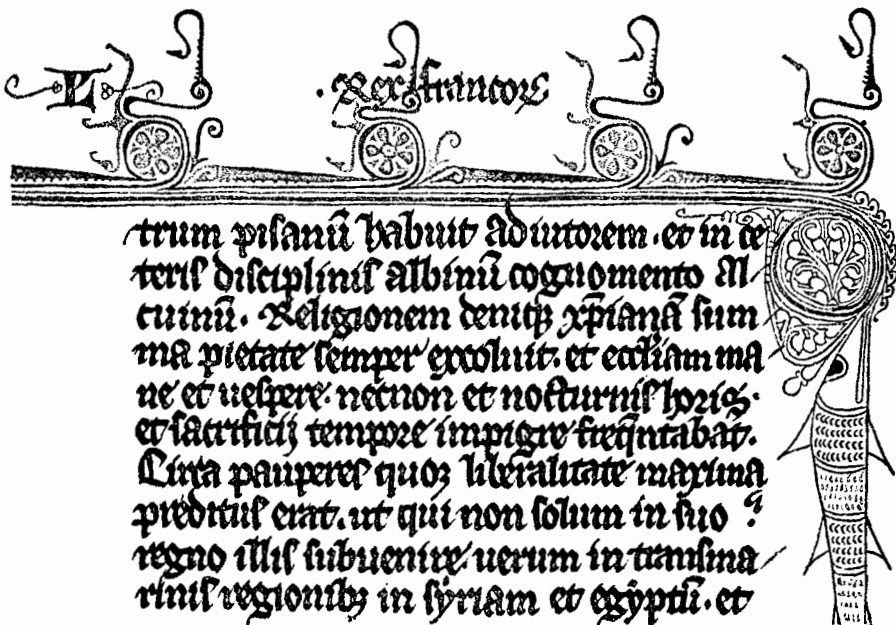 L · Rex francoꝝ
trum pisanū habuit adiutorem · et in ce
teris disciplinis albinū cognomento Al
cuinū · Religionem deniqꝫ xp̄ianā sum
ma pietate semper excoluit · et eccl̄iam ma
ne et uespere · necnon et nocturnis horis ·
et sacrificij tempore impigre freq̄ntabat̄ ·
Circa pauperes quoꝫ liberalitate maxima
preditus erat · ut qui non solum in suo
regno illis subuenire · uerum in transma
rinis regionibꝫ in syriam et egyptū · et